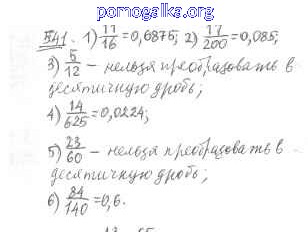 pomogalka.org
541. 1) 11/16 = 0,6875; 2) 17/200 = 0,085;
3) 5/12 – нельзя преобразовать в
десятичную дробь;
4) 14/625 = 0,0224;
5) 23/60 – нельзя преобразовать в
десятичную дробь;
6) 84/140 = 0,6.